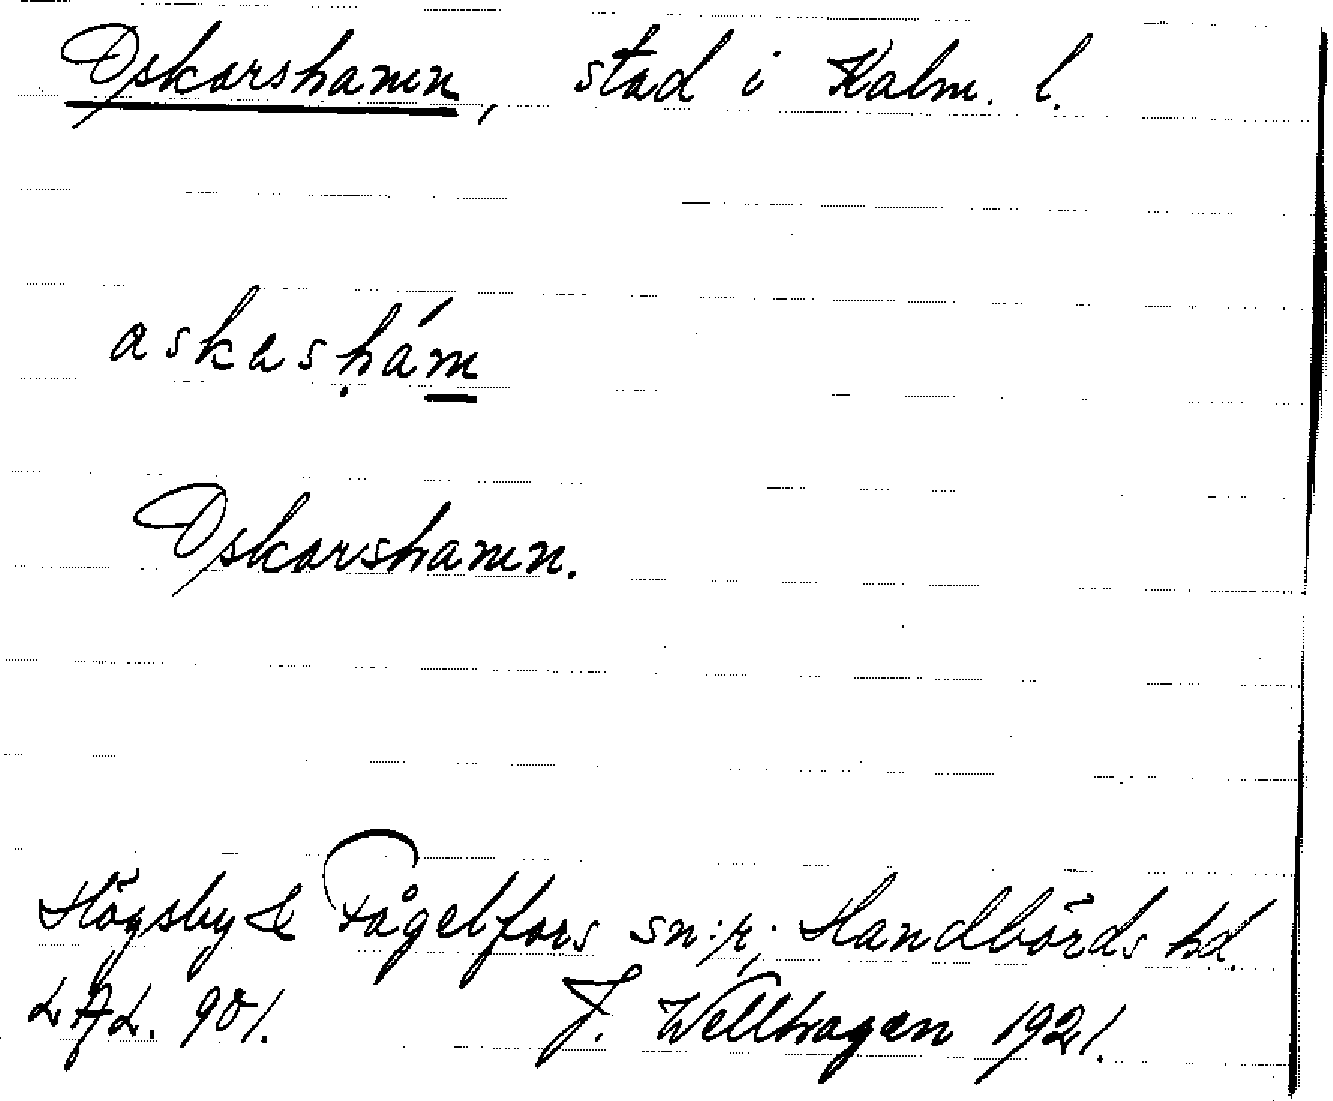 Oskarshamn, stad i Kalm. l.
askashám
Oskarshamn.
Högsby & Fågelfors sn:r, Handbörds hd.
LAL. 901. J. Wellhagen 1921.